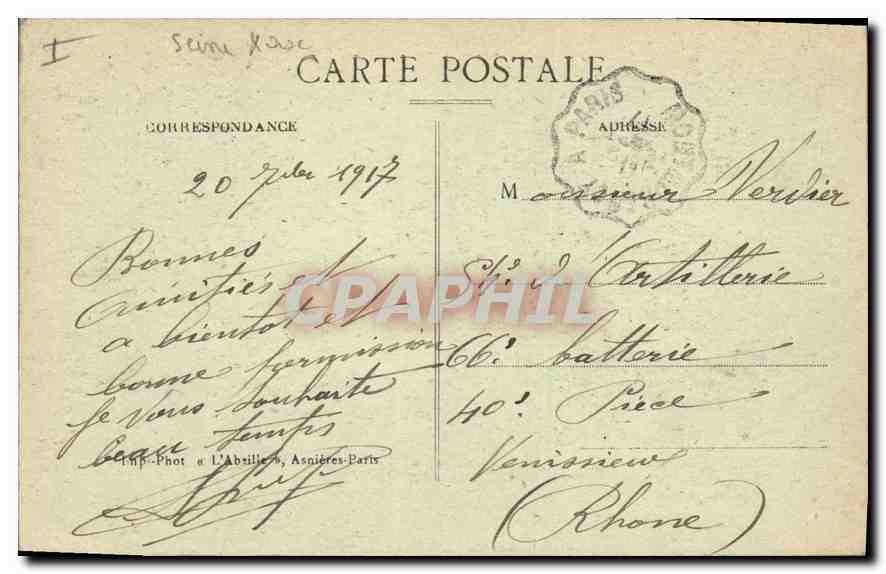 I
CARTE POSTALE
CORRESPONDANCE
ADRESSE
A PARIS
20 7bre 1917
Bonnes
amitiés et
a bientot et
bonne permission
je vous souhaite
beau temps
Imp-Phot « L'Abeille », Asnières-Paris
Monsieur Verdier
d'Artillerie
66e batterie
40e Pièce
Venissieux
(Rhone)
CPAPHIL